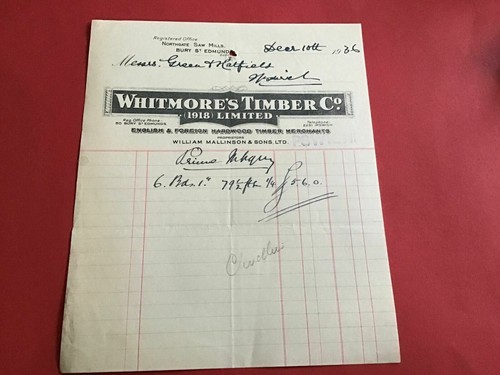 Registered Office
NORTHGATE SAW MILLS,
BURY ST EDMUNDS
Decr 10th 1936
Messrs. Green & Hatfield
Norwich
WHITMORE'S TIMBER Co
(1918) LIMITED
Reg. Office Phone
60, BURY ST EDMUNDS
Telephone
ENGLISH & FOREIGN HARDWOOD TIMBER MERCHANTS
PROPRIETORS
WILLIAM MALLINSON & SONS, LTD.
Prime Mahogany
6. Bds 1" 79½ ft 1/4 £5.6.0.